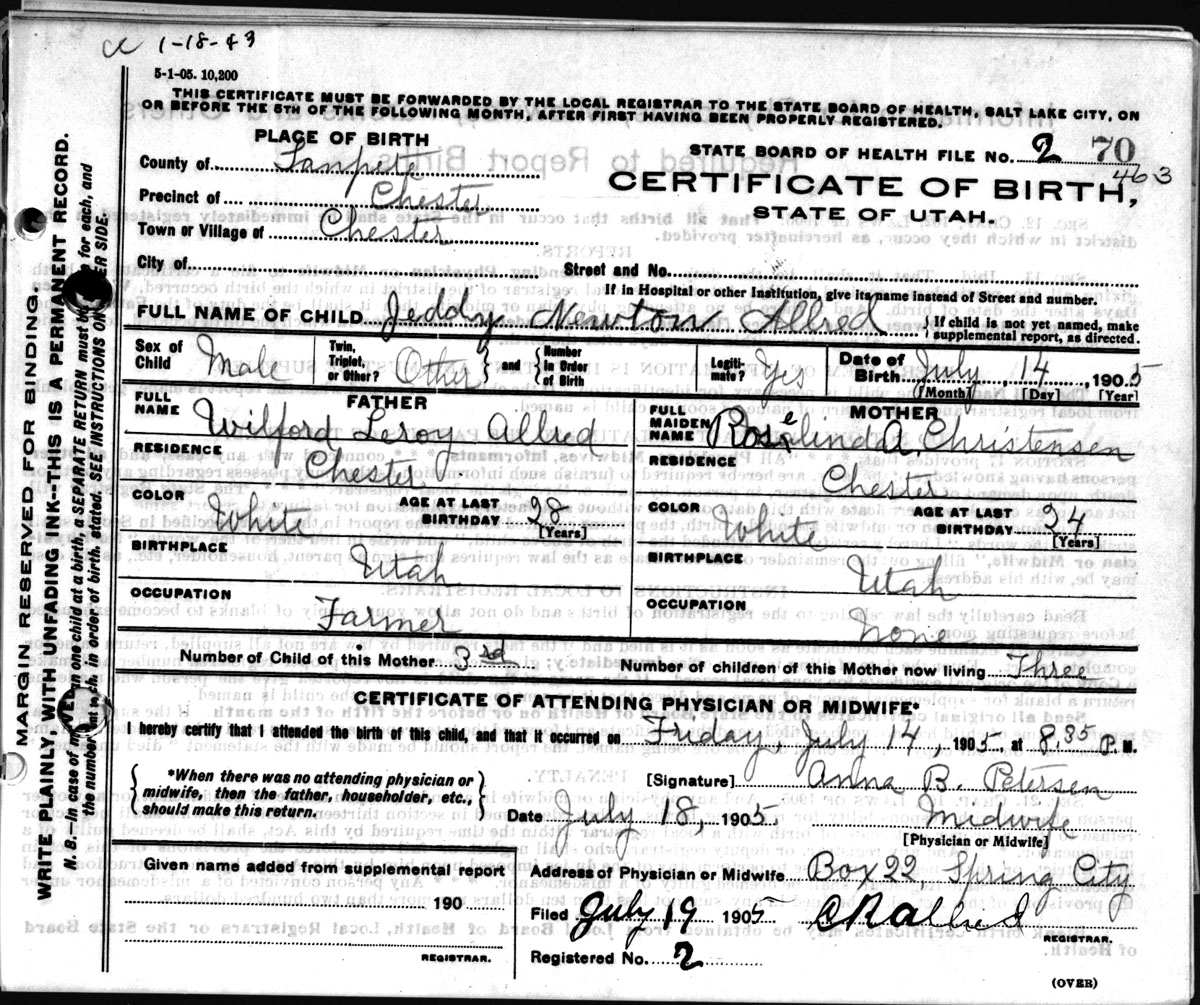 cc 1-18-43
5-1-05. 10,200
THIS CERTIFICATE MUST BE FORWARDED BY THE LOCAL REGISTRAR TO THE STATE BOARD OF HEALTH, SALT LAKE CITY, ON
OR BEFORE THE 5TH OF THE FOLLOWING MONTH, AFTER FIRST HAVING BEEN PROPERLY REGISTERED.
PLACE OF BIRTH
STATE BOARD OF HEALTH FILE NO. 2 70
463
County of Sanpete
CERTIFICATE OF BIRTH,
Precinct of Chester
STATE OF UTAH.
Town or Village of Chester
City of Street and No.
If in Hospital or other Institution, give its name instead of Street and number.
FULL NAME OF CHILD Jeddy Newton Allred { If child is not yet named, make
supplemental report, as directed.
Sex of Child Male Twin, Triplet, or Other? Other } and { Number in Order of Birth Legiti-mate? Yes Date of Birth July, 14, 1905
[Month] [Day] [Year]
FATHER
FULL NAME Wilford Leroy Allred
MOTHER
FULL MAIDEN NAME Roselinda A. Christensen
RESIDENCE Chester
RESIDENCE Chester
COLOR White AGE AT LAST BIRTHDAY 28 [Years]
COLOR White AGE AT LAST BIRTHDAY 24 [Years]
BIRTHPLACE Utah
BIRTHPLACE Utah
OCCUPATION Farmer
OCCUPATION None
Number of Child of this Mother 3rd Number of children of this Mother now living Three
CERTIFICATE OF ATTENDING PHYSICIAN OR MIDWIFE*
I hereby certify that I attended the birth of this child, and that it occurred on Friday, July 14, 1905, at 8.35 P. M.
*When there was no attending physician or
midwife, then the father, householder, etc.,
should make this return.
[Signature] Anna B. Petersen
Date July 18, 1905 Midwife
[Physician or Midwife]
Given name added from supplemental report
190
REGISTRAR.
Address of Physician or Midwife Box 22, Spring City
Filed July 19 1905 CR Allred
REGISTRAR.
Registered No. 2
(OVER)
MARGIN RESERVED FOR BINDING.
WRITE PLAINLY, WITH UNFADING INK--THIS IS A PERMANENT RECORD.
N. B.--In case of more than one child at a birth, a SEPARATE RETURN must be made for each, and
the number of each, in order of birth, stated. SEE INSTRUCTIONS ON OTHER SIDE.